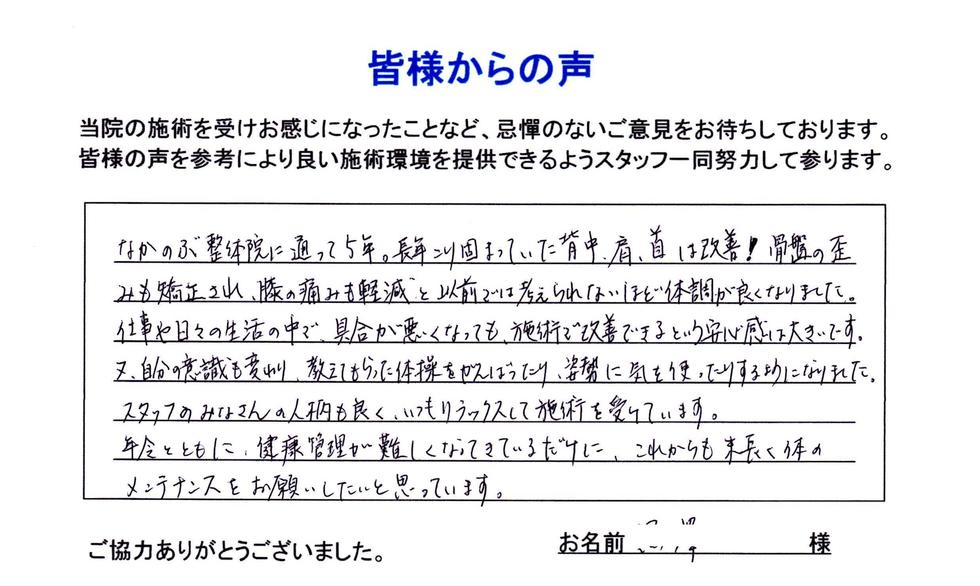 皆様からの声
当院の施術を受けお感じになったことなど、忌憚のないご意見をお待ちしております。
皆様の声を参考により良い施術環境を提供できるようスタッフ一同努力して参ります。
なかのぶ整体院に通って5年。長年こり固まっていた背中、肩、首は改善!骨盤の歪
みも矯正され、膝の痛みも軽減と以前では考えられないほど体調が良くなりました。
仕事や日々の生活の中で、具合が悪くなっても、施術で改善できるという安心感は大きいです。
又、自分の意識も変わり、教えてもらった体操をがんばったり、姿勢に気を使ったりするようになりました。
スタッフのみなさんの人柄も良く、いつもリラックスして施術を受けています。
年令とともに、健康管理が難しくなってきているだけに、これからも末長く体の
メンテナンスをお願いしたいと思っています。
ご協力ありがとうございました。
お名前 様